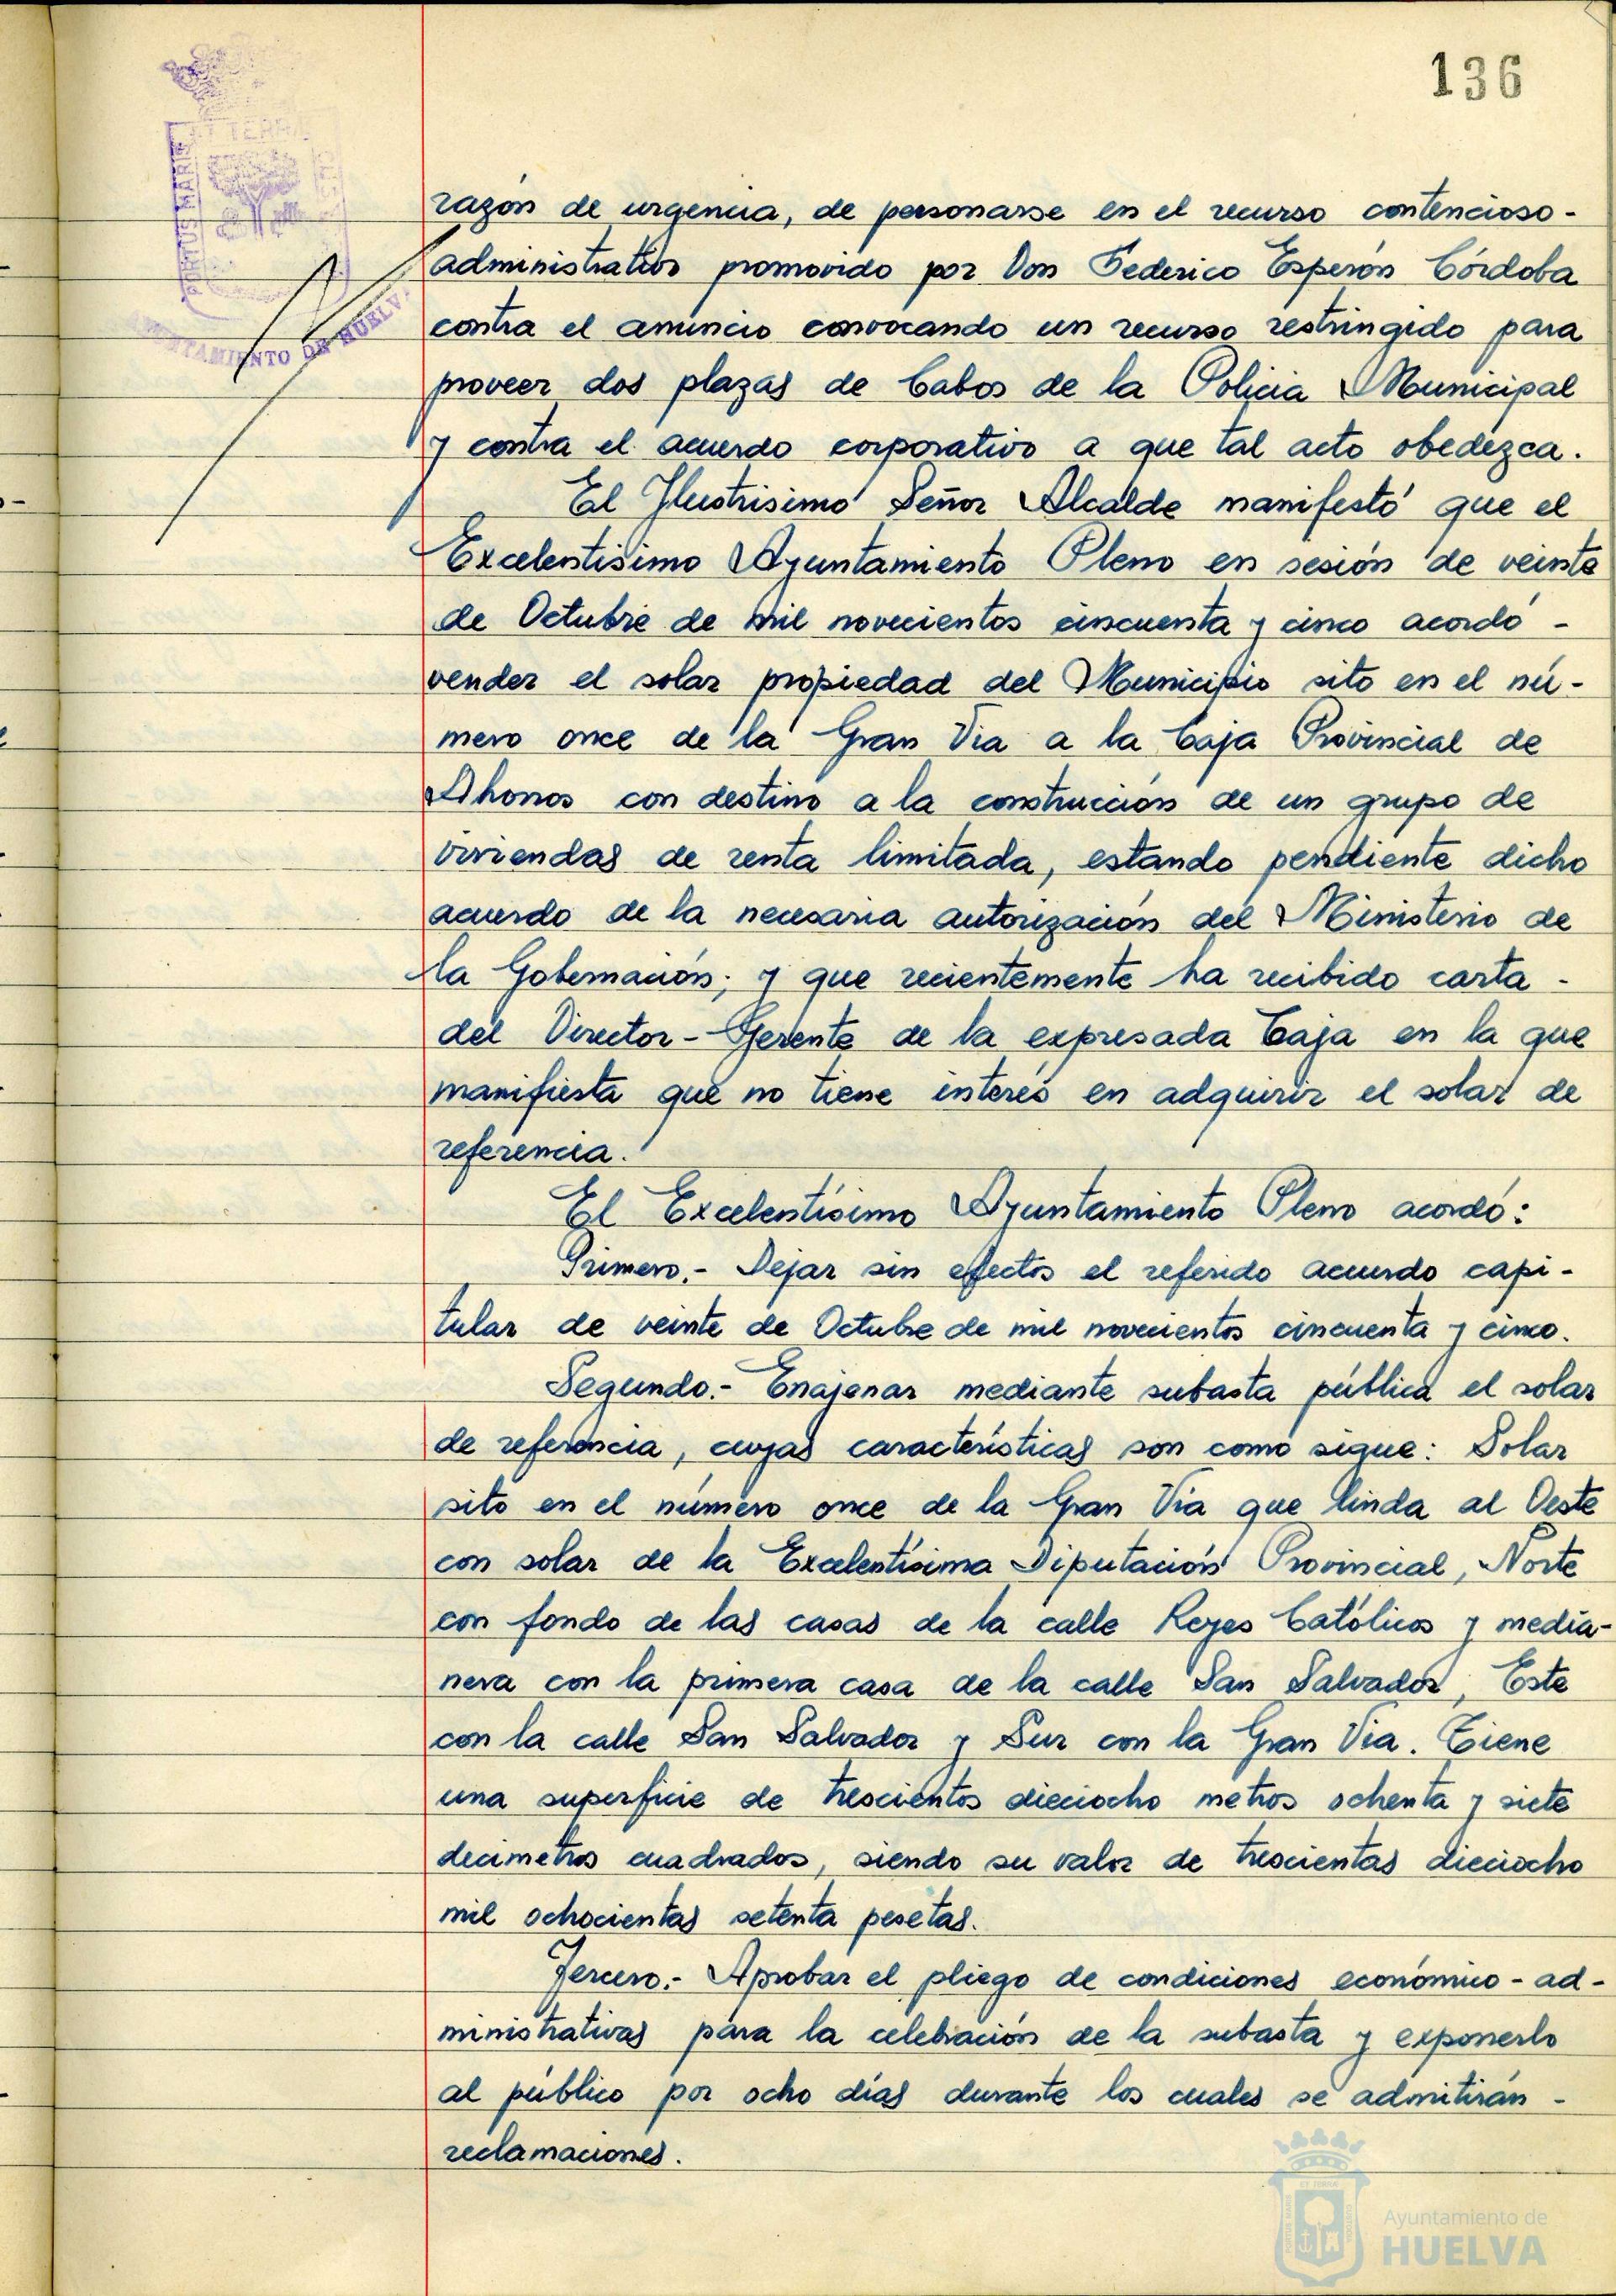 136
PORTUS MARIS
ET TERRÆ
AYUNTAMIENTO DE HUELVA
razón de urgencia, de personarse en el recurso contencioso-
administrativo promovido por Don Federico Esperón Córdoba
contra el anuncio convocando un recurso restringido para
proveer dos plazas de Cabos de la Policia Municipal
y contra el acuerdo corporativo a que tal acto obedezca.
El Ilustrisimo Señor Alcalde manifestó que el
Excelentisimo Ayuntamiento Pleno en sesión de veinte
de Octubre de mil novecientos cincuenta y cinco acordó -
vender el solar propiedad del Municipio sito en el nú-
mero once de la Gran Via a la Caja Provincial de
Ahorros con destino a la construcción de un grupo de
viviendas de renta limitada, estando pendiente dicho
acuerdo de la necesaria autorización del Ministerio de
la Gobernación; y que recientemente ha recibido carta -
del Director-Gerente de la expresada Caja en la que
manifiesta que no tiene interés en adquirir el solar de
referencia.
El Excelentísimo Ayuntamiento Pleno acordó:
Primero.- Dejar sin efectos el referido acuerdo capi-
tular de veinte de Octubre de mil novecientos cincuenta y cinco.
Segundo.- Enajenar mediante subasta pública el solar
de referencia, cuyas características son como sigue: Solar
sito en el número once de la Gran Via que linda al Oeste
con solar de la Excelentísima Diputación Provincial, Norte
con fondo de las casas de la calle Reyes Católicos y media-
nera con la primera casa de la calle San Salvador, Este
con la calle San Salvador y Sur con la Gran Via. Tiene
una superficie de trescientos dieciocho metros ochenta y siete
decimetros cuadrados, siendo su valor de trescientas dieciocho
mil ochocientas setenta pesetas.
Tercero.- Aprobar el pliego de condiciones económico-ad-
ministrativas para la celebración de la subasta y exponerlo
al público por ocho días durante los cuales se admitirán -
reclamaciones.
Ayuntamiento de
HUELVA